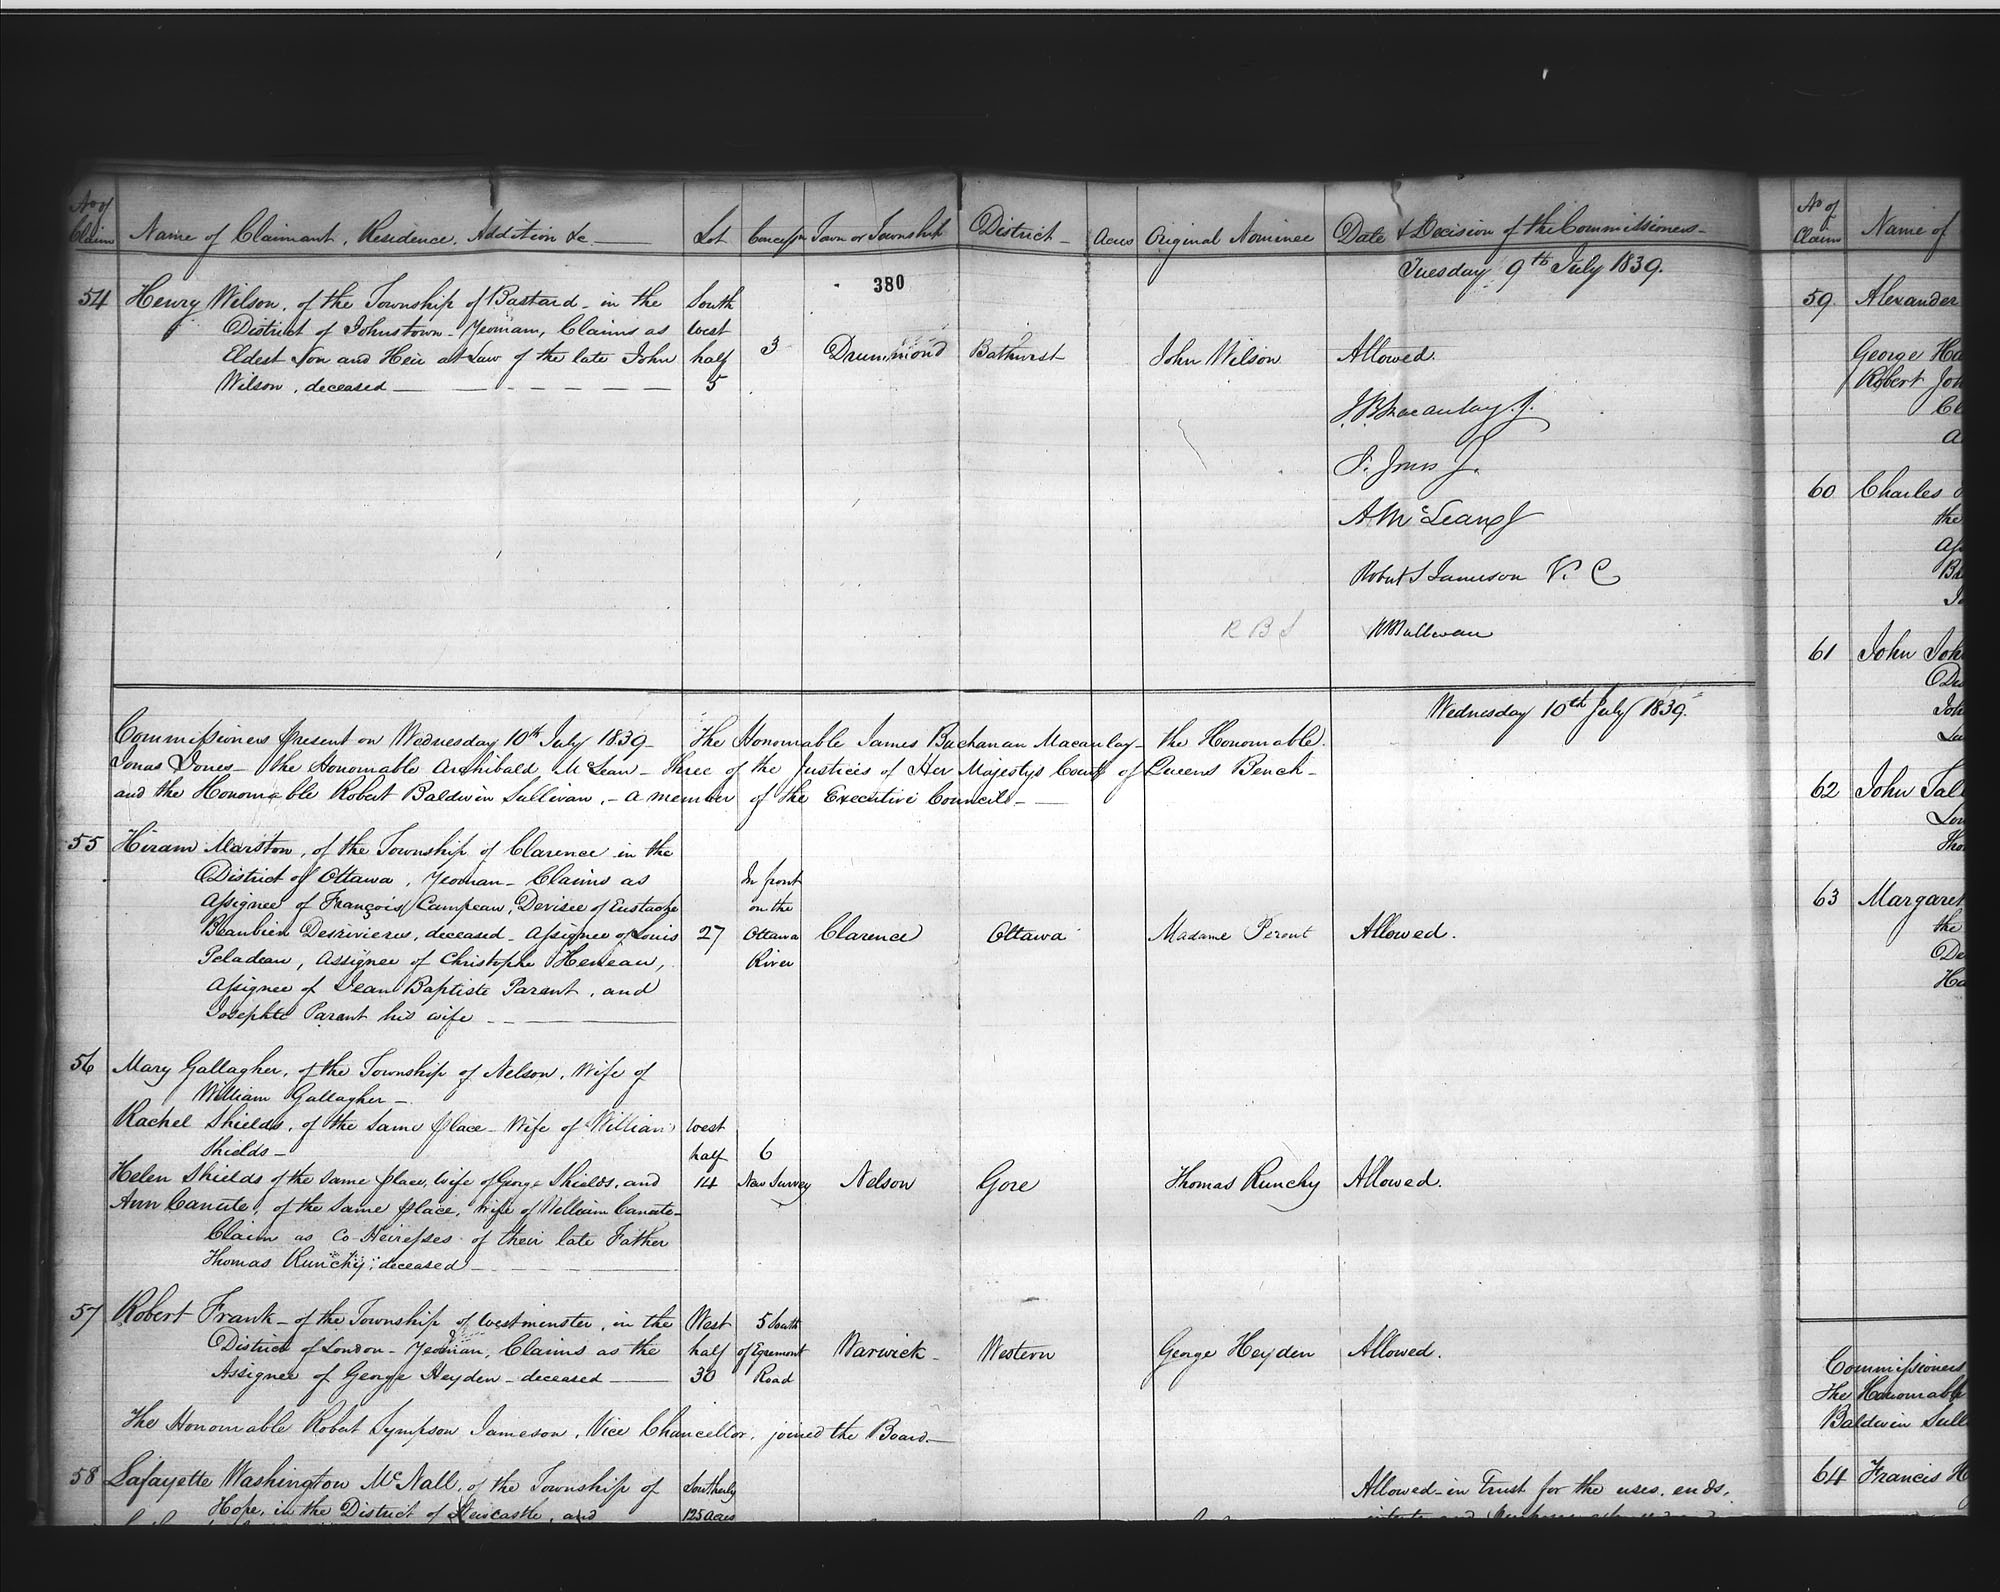 No of Claim Name of Claimant, Residence, Addition &c Lot Concessn Town or Township District Acres Original Nominee Date & Decision of the Commissioners
Tuesday 9th July 1839.
380
54 Henry Wilson, of the Township of Bastard in the South
District of Johnstown Yeoman, Claims as west
Eldest Son and Heir at Law of the late John half 3 Drummond Bathurst John Wilson Allowed.
Wilson, deceased 5
J.B. Macaulay. J.
J. Jones J.
A McLean J
Robert S Jameson V. C
R B S RB Sullivan
Wednesday 10th July 1839.
Commissioners present on Wednesday 10th July 1839 The Honourable James Buchanan Macaulay the Honourable
Jonas Jones the Honourable Archibald McLean Three of the Justices of Her Majestys Court of Queens Bench
and the Honourable Robert Baldwin Sullivan, a member of the Executive Councils
55 Hiram Marston, of the Township of Clarence in the
District of Ottawa, Yeoman Claims as In front
Assignee of François Campeau, Devisee of Eustache on the
Beaubien Desrivieres, deceased Assignee of Louis 27 Ottawa Clarence Ottawa Madame Perout Allowed.
Peladeau, Assignee of Christophe Heneau, River
Assignee of Jean Baptiste Parent, and
Josephte Parant his wife
56 Mary Gallagher, of the Township of Nelson, Wife of
William Gallagher
Rachel Shields, of the same place Wife of William west
Shields half 6
Helen Shields of the same place, wife of George Shields, and 14 New Survey Nelson Gore Thomas Runchy Allowed.
Ann Canute, of the same place, Wife of William Canute
Claim as Co-Heiresses of their late Father
Thomas Runchy, deceased
57 Robert Frank of the Township of Westminster, in the West 5 South
District of London Yeoman, Claims as the half of Egremont Warwick Western George Heyden Allowed.
Assignee of George Heyden deceased 30 Road
The Honourable Robert Sympson Jameson, Vice Chancellor, joined the Board.
58 Lafayette Washington McNall, of the Township of Southerly Allowed in Trust for the uses, ends,
Hope, in the District of Newcastle, and 125 acres
No of Claim Name of
59 Alexander
George Ha
Robert Joh
Cl
a
60 Charles
the
As
Ba
Jo
61 John Joh
Dis
Joh
La
62 John Tal
Lon
Tho
63 Margaret
the
De
Ha
Commissioners
The Honourable
Baldwin Sull
64 Francis H